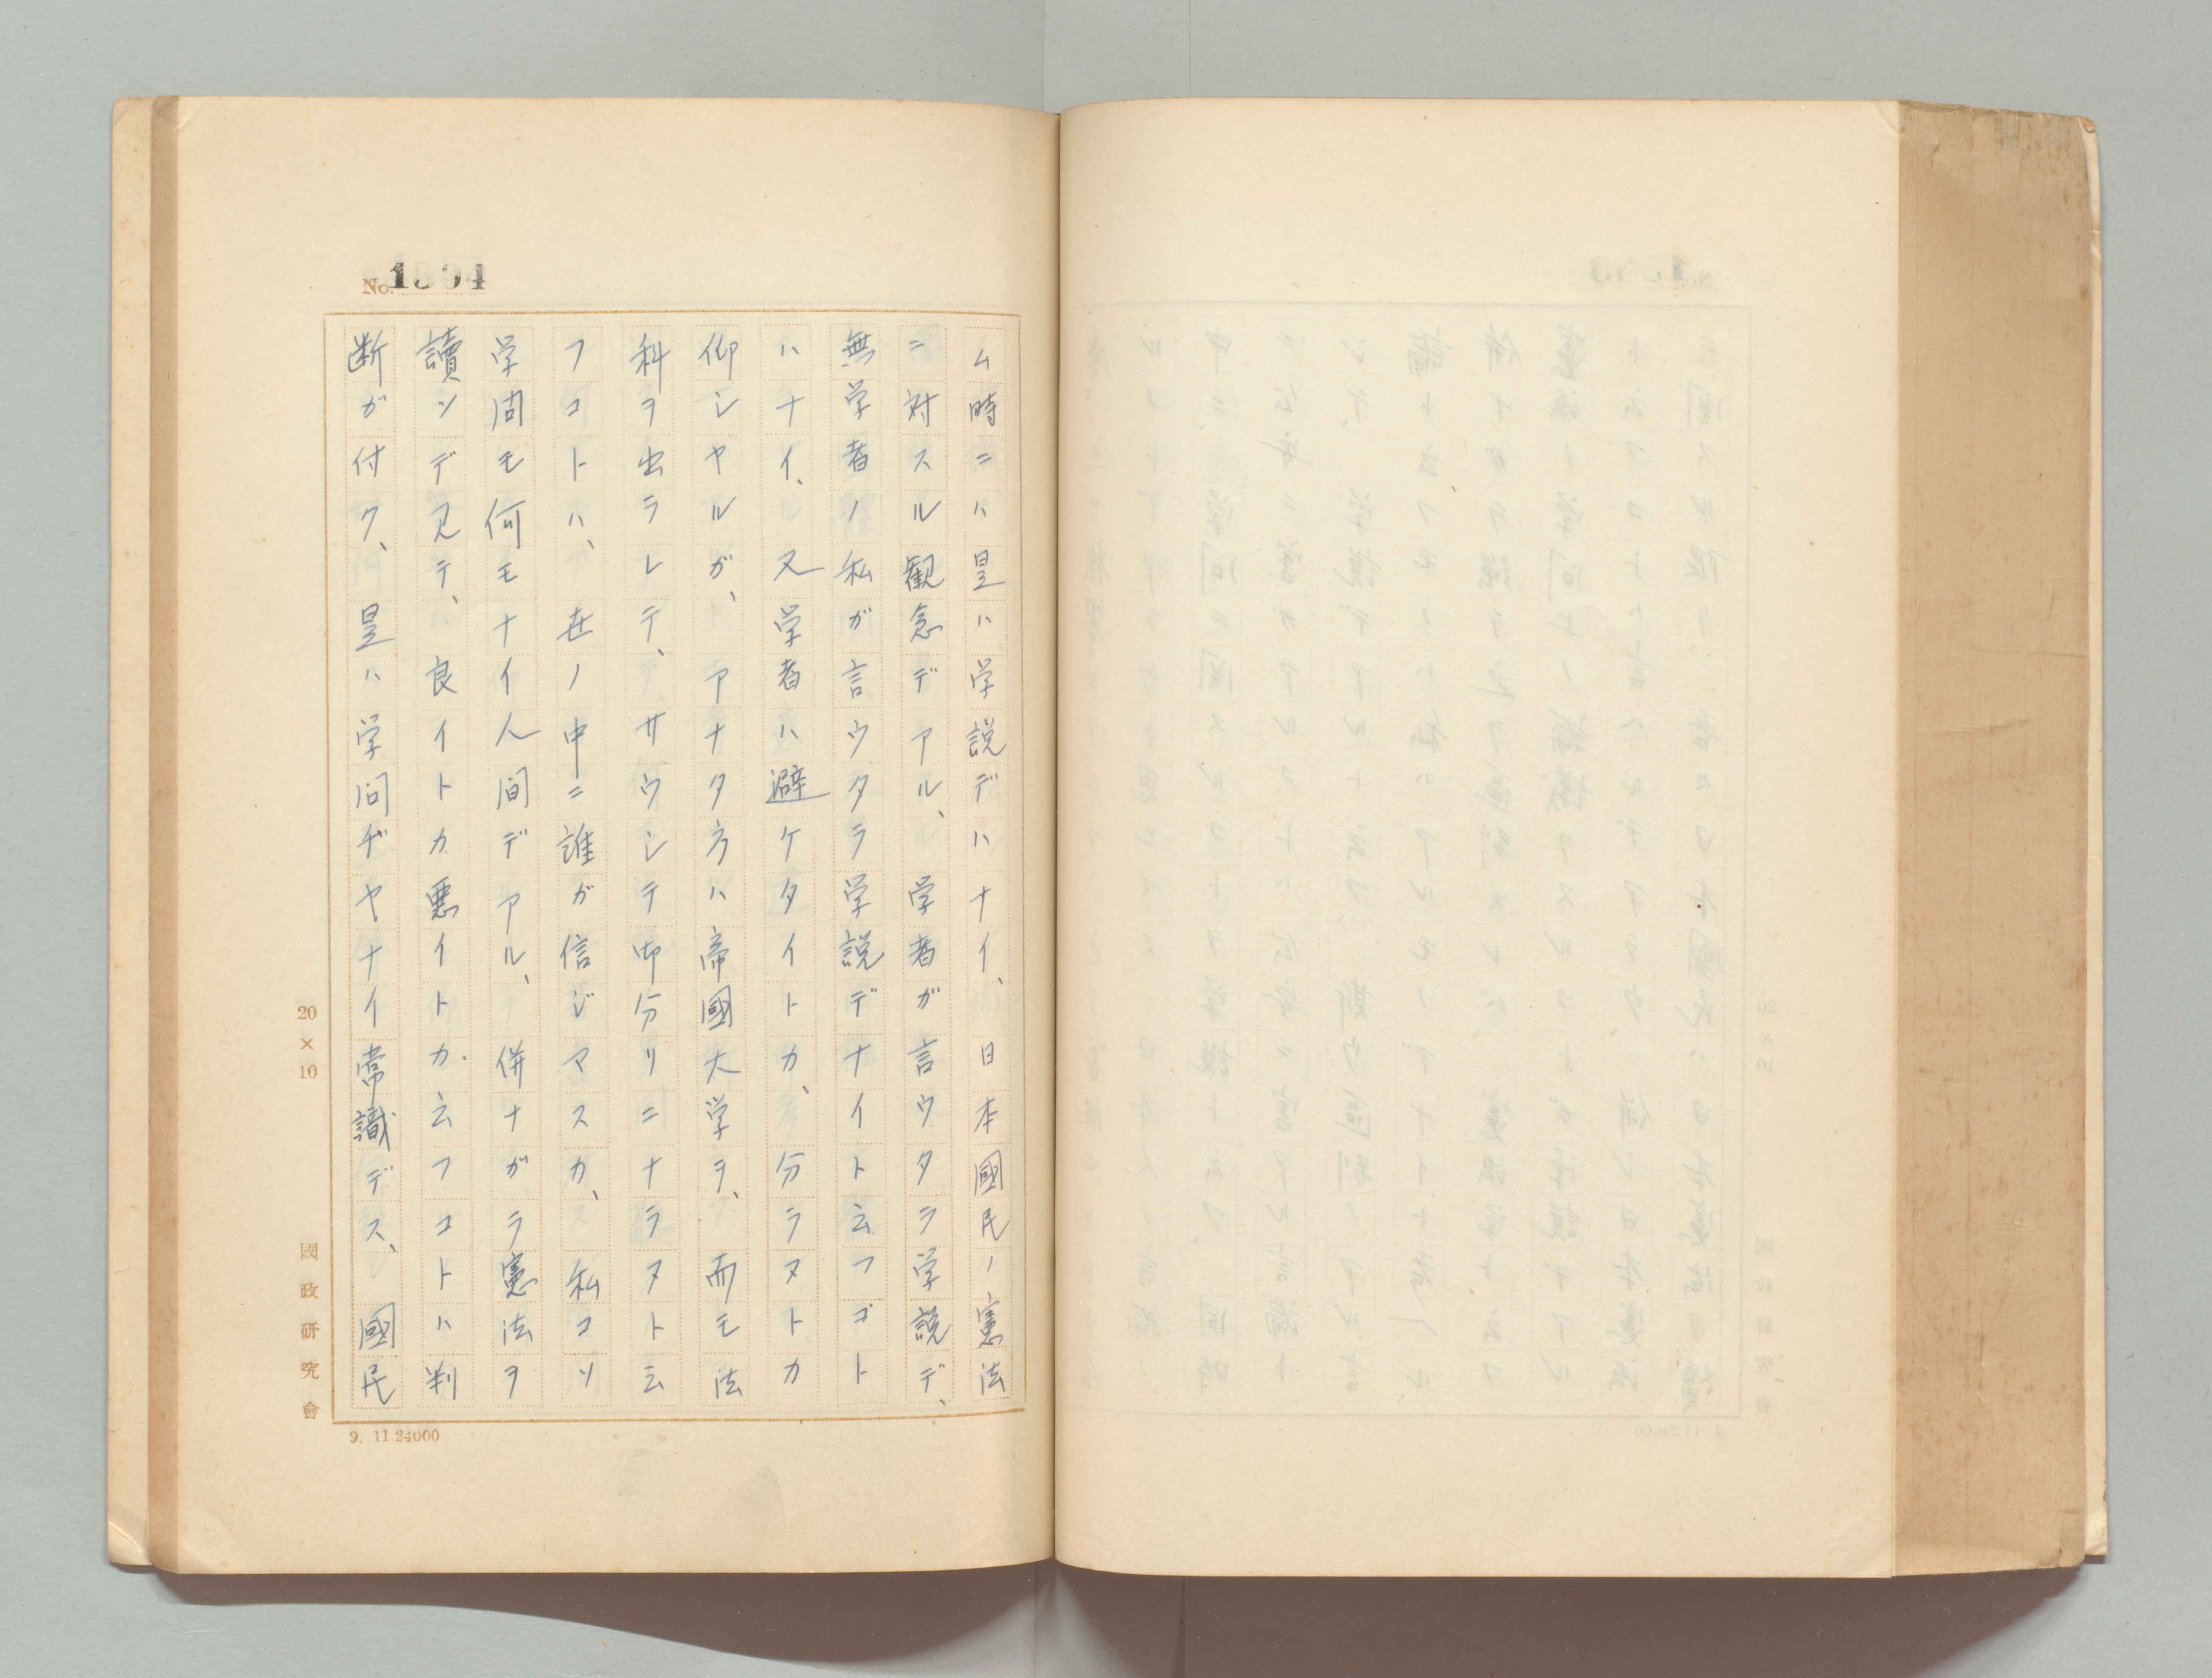 No. 1504
ム時ニハ是ハ学説デハナイ、日本國民ノ憲法
ニ対スル観念デアル、学者ガ言ウタラ学説デ、
無学者ノ私ガ言ウタラ学説デナイト云フコト
ハナイ、又学者ハ避ケタイトカ、分ラヌトカ
仰シヤルガ、アナタ方ハ帝國大学ヲ、而モ法
科ヲ出ラレテ、サウシテ御分リニナラヌト云
フコトハ、世ノ中ニ誰ガ信ジマスカ、私コソ
学问モ何モナイ人间デアル、併ナガラ憲法ヲ
讀ンデ見テ、良イトカ悪イトカ云フコトハ判
断ガ付ク、是ハ学问ヂヤナイ常識デス、國民
20×10
國政研究會
9. 11 24000